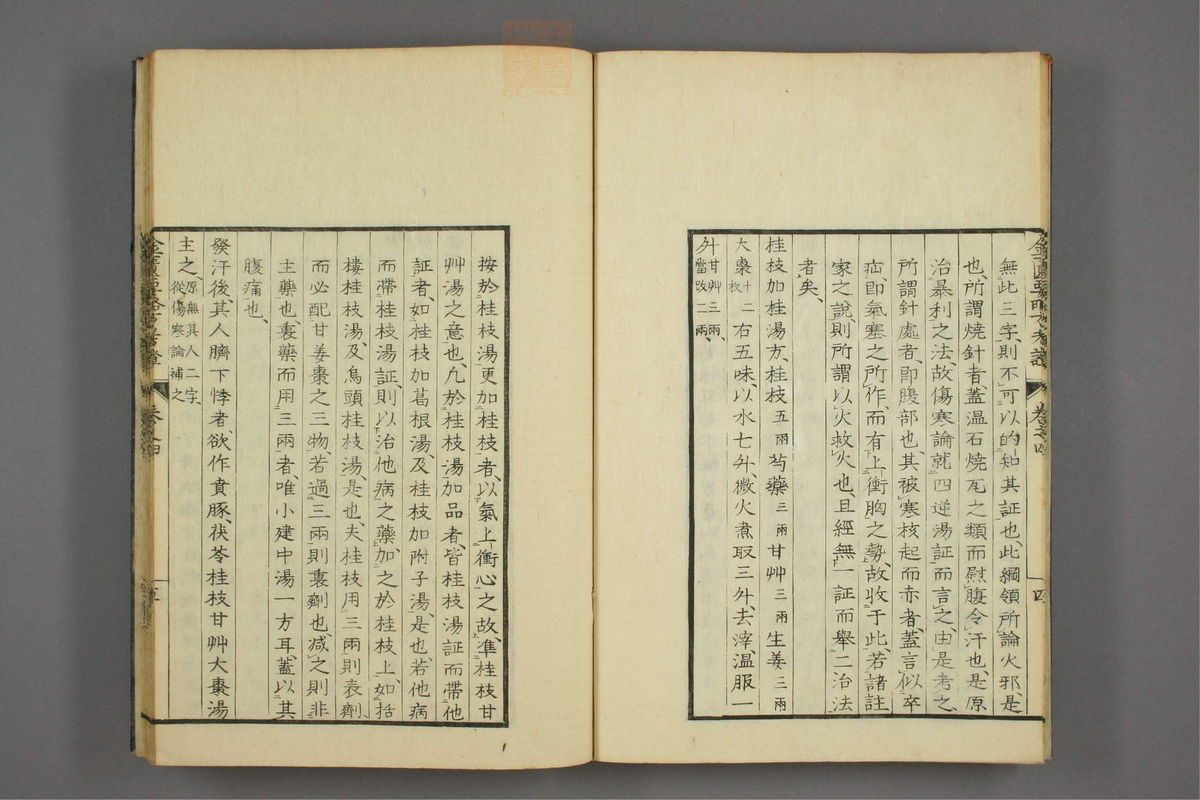 無此三字則不可以的知其証也此綱領所論火邪是
也所謂燒針者蓋温石燒瓦之類而慰腹令汗也是原
治暴利之法故傷寒論就四逆湯証而言之由是考之
所謂針處者即腹部也其被寒核起而赤者蓋言似卒
疝即氣塞之所作而有上衝胸之勢故收于此若諸註
家之說則所謂以火救火也且經無一証而舉二治法
者矣
桂枝加桂湯方桂枝五兩芍藥三兩甘艸三兩生姜三兩
大棗十二枚右五味以水七升微火煮取三升去滓温服一
升甘艸三兩當改二兩
按於桂枝湯更加桂枝者以氣上衝心之故準桂枝甘
艸湯之意也凡於桂枝湯加品者皆桂枝湯証而帶他
証者如桂枝加葛根湯及桂枝加附子湯是也若他病
而帶桂枝湯証則以治他病之藥加之於桂枝上如括
樓桂枝湯及烏頭桂枝湯是也夫桂枝用三兩則表劑
而必配甘姜棗之三物若過三兩則裏劑也减之則非
主藥也裏藥而用三兩者唯小建中湯一方耳蓋以其
腹痛也
發汗後其人臍下悸者欲作賁豚茯苓桂枝甘艸大棗湯
主之原無其人二字從傷寒論補之
卷之四